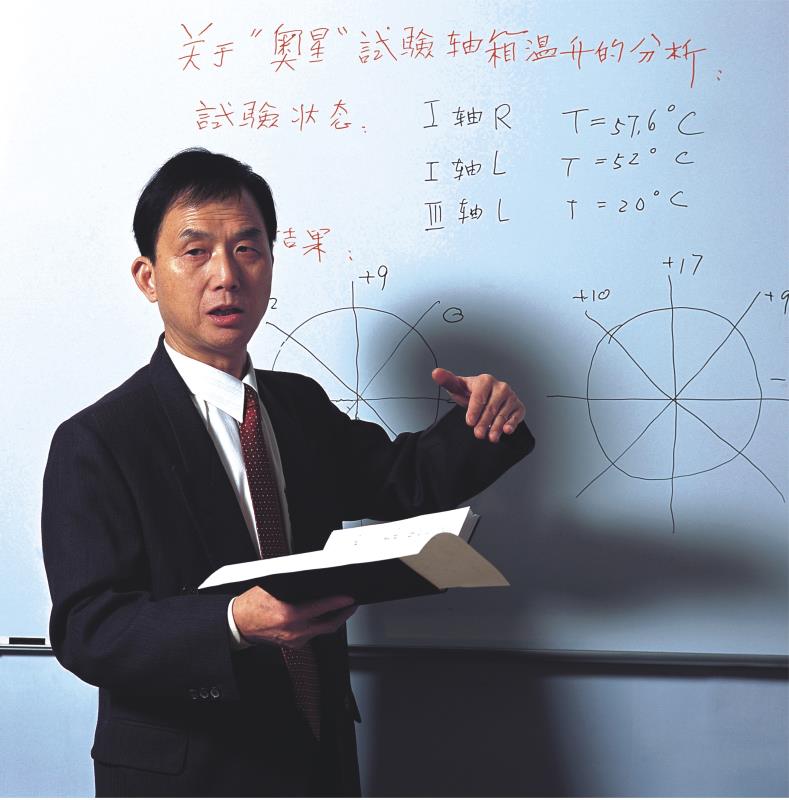 关于“奥星”試驗轴箱温升的分析：
試驗状态：
I 轴 R T=57.6°C
I 轴 L T=52°C
III 轴 L T=20°C
结果：
2 +9
+10 +17 +9
-